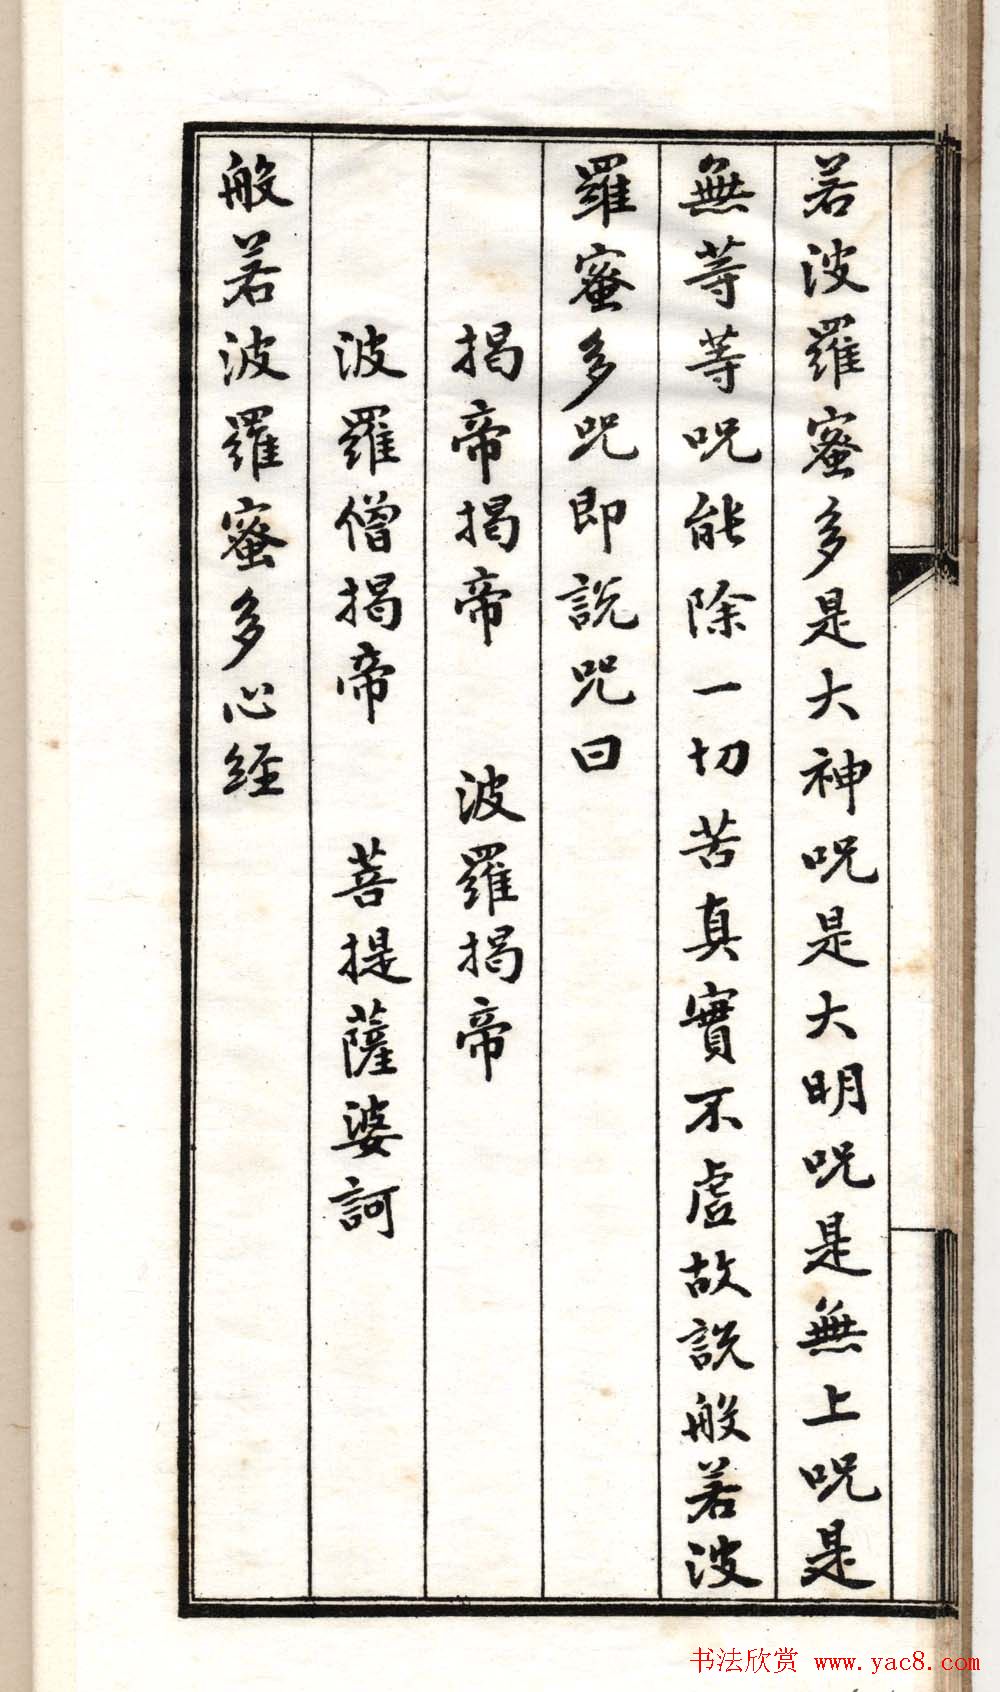 若波羅蜜多是大神咒是大明咒是無上咒是
無等等咒能除一切苦真實不虛故說般若波
羅蜜多咒即說咒曰
揭帝揭帝　波羅揭帝
波羅僧揭帝　菩提薩婆訶
般若波羅蜜多心経
书法欣赏 www.yac8.com